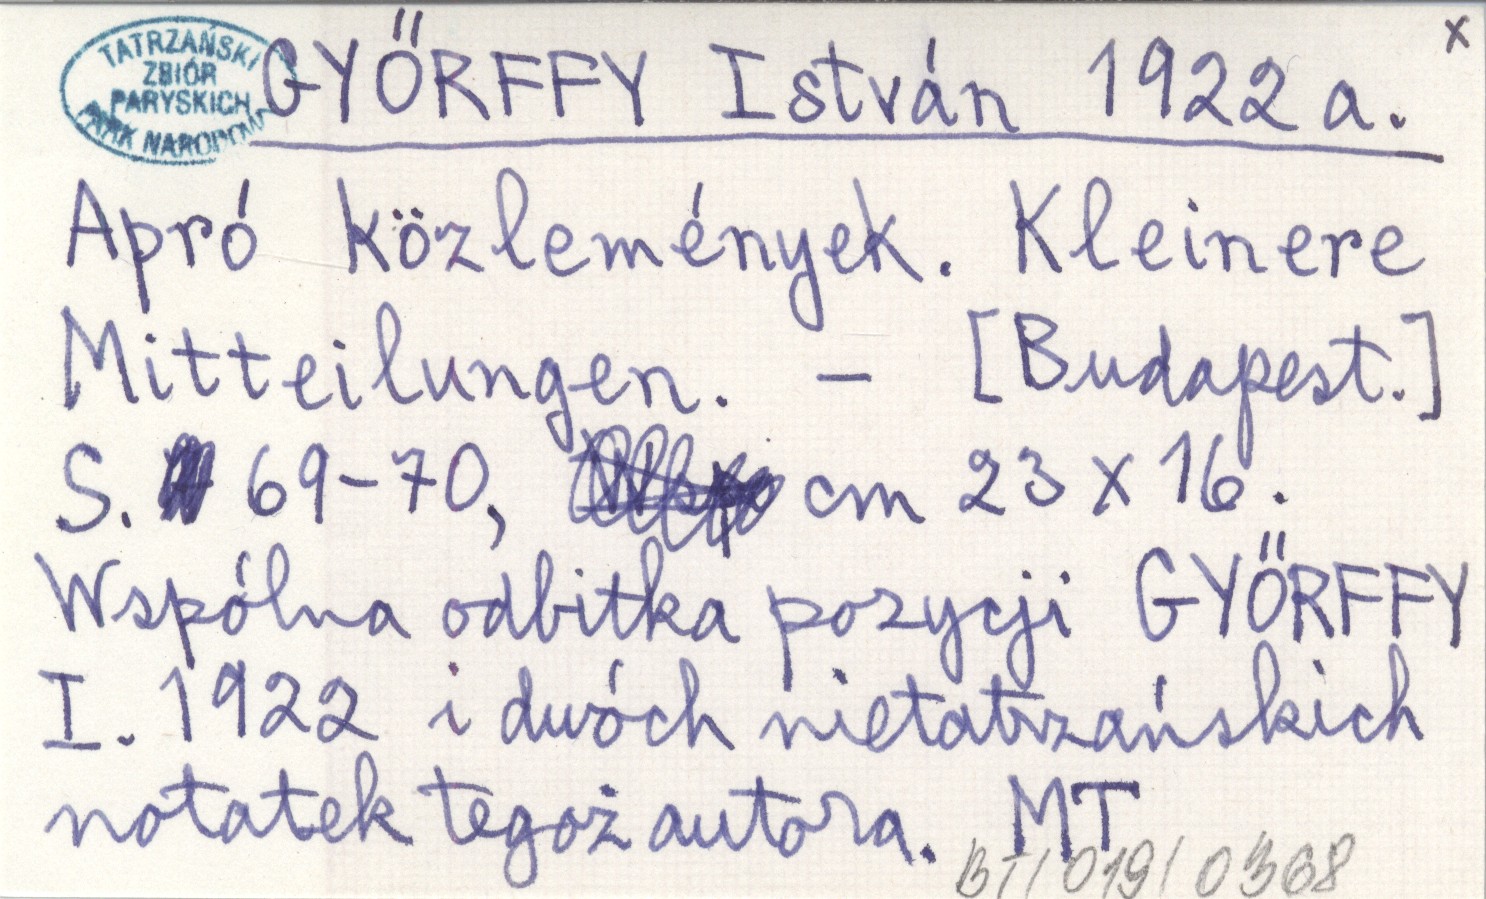 TATRZAŃSKI
ZBIÓR
PARYSKICH
PARK NARODOWY
x
GYŐRFFY István 1922 a.
Apró közlemények. Kleinere
Mitteilungen. – [Budapest.]
S. 69-70, cm 23 x 16.
Wspólna odbitka pozycji GYŐRFFY
I. 1922 i dwóch nietatrzańskich
notatek tegoż autora. MT
BT/019/0368